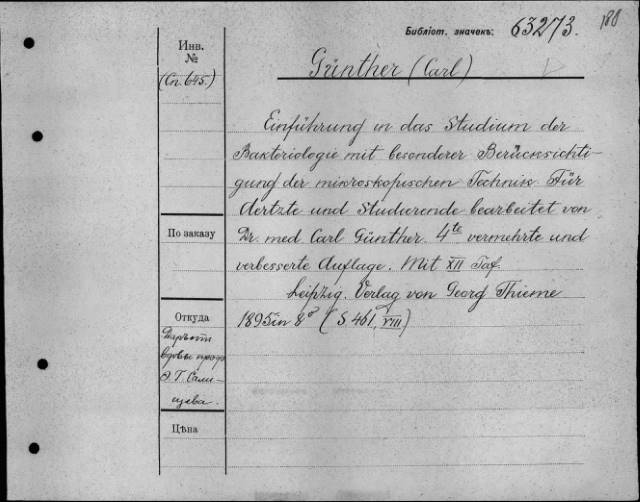 Библіот. значекъ: 63273. 188
Инв. №
(Сп. 645.)
Günther (Carl)
Einführung in das Studium der
Bakteriologie mit besonderer Berücksichti-
gung der mikroskopischen Technik. Für
Aertzte und Studierende bearbeitet von
По заказу
Dr. med. Carl Günther. 4te vermehrte und
verbesserte Auflage. Mit XII Taf.
Leipzig. Verlag von Georg Thieme
Откуда
1895 in 8° (S. 461, VIII)
вдовы проф.
Э. Г. Сали-
щева.
Цѣна